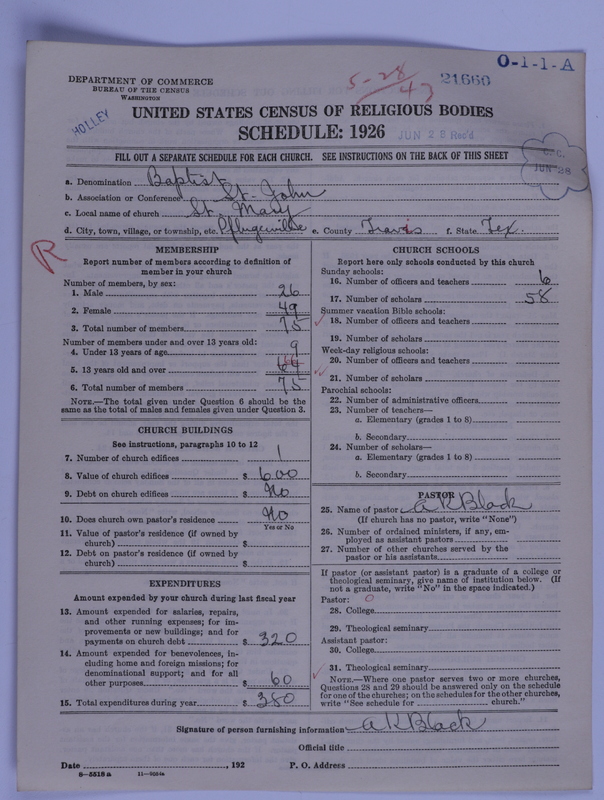 O-1-1-A
DEPARTMENT OF COMMERCE
BUREAU OF THE CENSUS
WASHINGTON
5-28
43
21660
HOLLEY
UNITED STATES CENSUS OF RELIGIOUS BODIES
SCHEDULE: 1926
JUN 28 Rec'd
FILL OUT A SEPARATE SCHEDULE FOR EACH CHURCH. SEE INSTRUCTIONS ON THE BACK OF THIS SHEET
JUN 28
a. Denomination Baptist
b. Association or Conference St. John
c. Local name of church St. Mary
d. City, town, village, or township, etc. Pflugerville e. County Travis f. State Tex.
R
MEMBERSHIP
Report number of members according to definition of
member in your church
Number of members, by sex:
1. Male 26
2. Female 49
3. Total number of members 75
Number of members under and over 13 years old:
4. Under 13 years of age 9
5. 13 years old and over 66
6. Total number of members 75
NOTE.—The total given under Question 6 should be
same as the total of males and females given under Question 3.
CHURCH BUILDINGS
See instructions, paragraphs 10 to 12
7. Number of church edifices 1
8. Value of church edifices $ 600
9. Debt on church edifices $ No
10. Does church own pastor's residence No
Yes or No
11. Value of pastor's residence (if owned by
church) $
12. Debt on pastor's residence (if owned by
church) $
EXPENDITURES
Amount expended by your church during last fiscal year
13. Amount expended for salaries, repairs,
and other running expenses; for im-
provements or new buildings; and for
payments on church debt $ 320
14. Amount expended for benevolences, in-
cluding home and foreign missions; for
denominational support; and for all
other purposes $ 60
15. Total expenditures during year $ 380
CHURCH SCHOOLS
Report here only schools conducted by this church
Sunday schools:
16. Number of officers and teachers 6
17. Number of scholars 58
Summer vacation Bible schools:
18. Number of officers and teachers
19. Number of scholars
Week-day religious schools:
20. Number of officers and teachers
21. Number of scholars
Parochial schools:
22. Number of administrative officers
23. Number of teachers—
a. Elementary (grades 1 to 8)
b. Secondary
24. Number of scholars—
a. Elementary (grades 1 to 8)
b. Secondary
PASTOR
25. Name of pastor A K Black
(If church has no pastor, write "None")
26. Number of ordained ministers, if any, em-
ployed as assistant pastors
27. Number of other churches served by the
pastor or his assistants
If pastor (or assistant pastor) is a graduate of a college or
theological seminary, give name of institution below. (If
not a graduate, write "No" in the space indicated.)
Pastor: 0
28. College
29. Theological seminary
Assistant pastor:
30. College
31. Theological seminary
NOTE.—Where one pastor serves two or more churches,
Questions 28 and 29 should be answered only on the schedule
for one of the churches; on the schedules for the other churches,
write "See schedule for church."
Signature of person furnishing information A K Black
Official title
Date , 192 P. O. Address
8-5518a 11-9054a